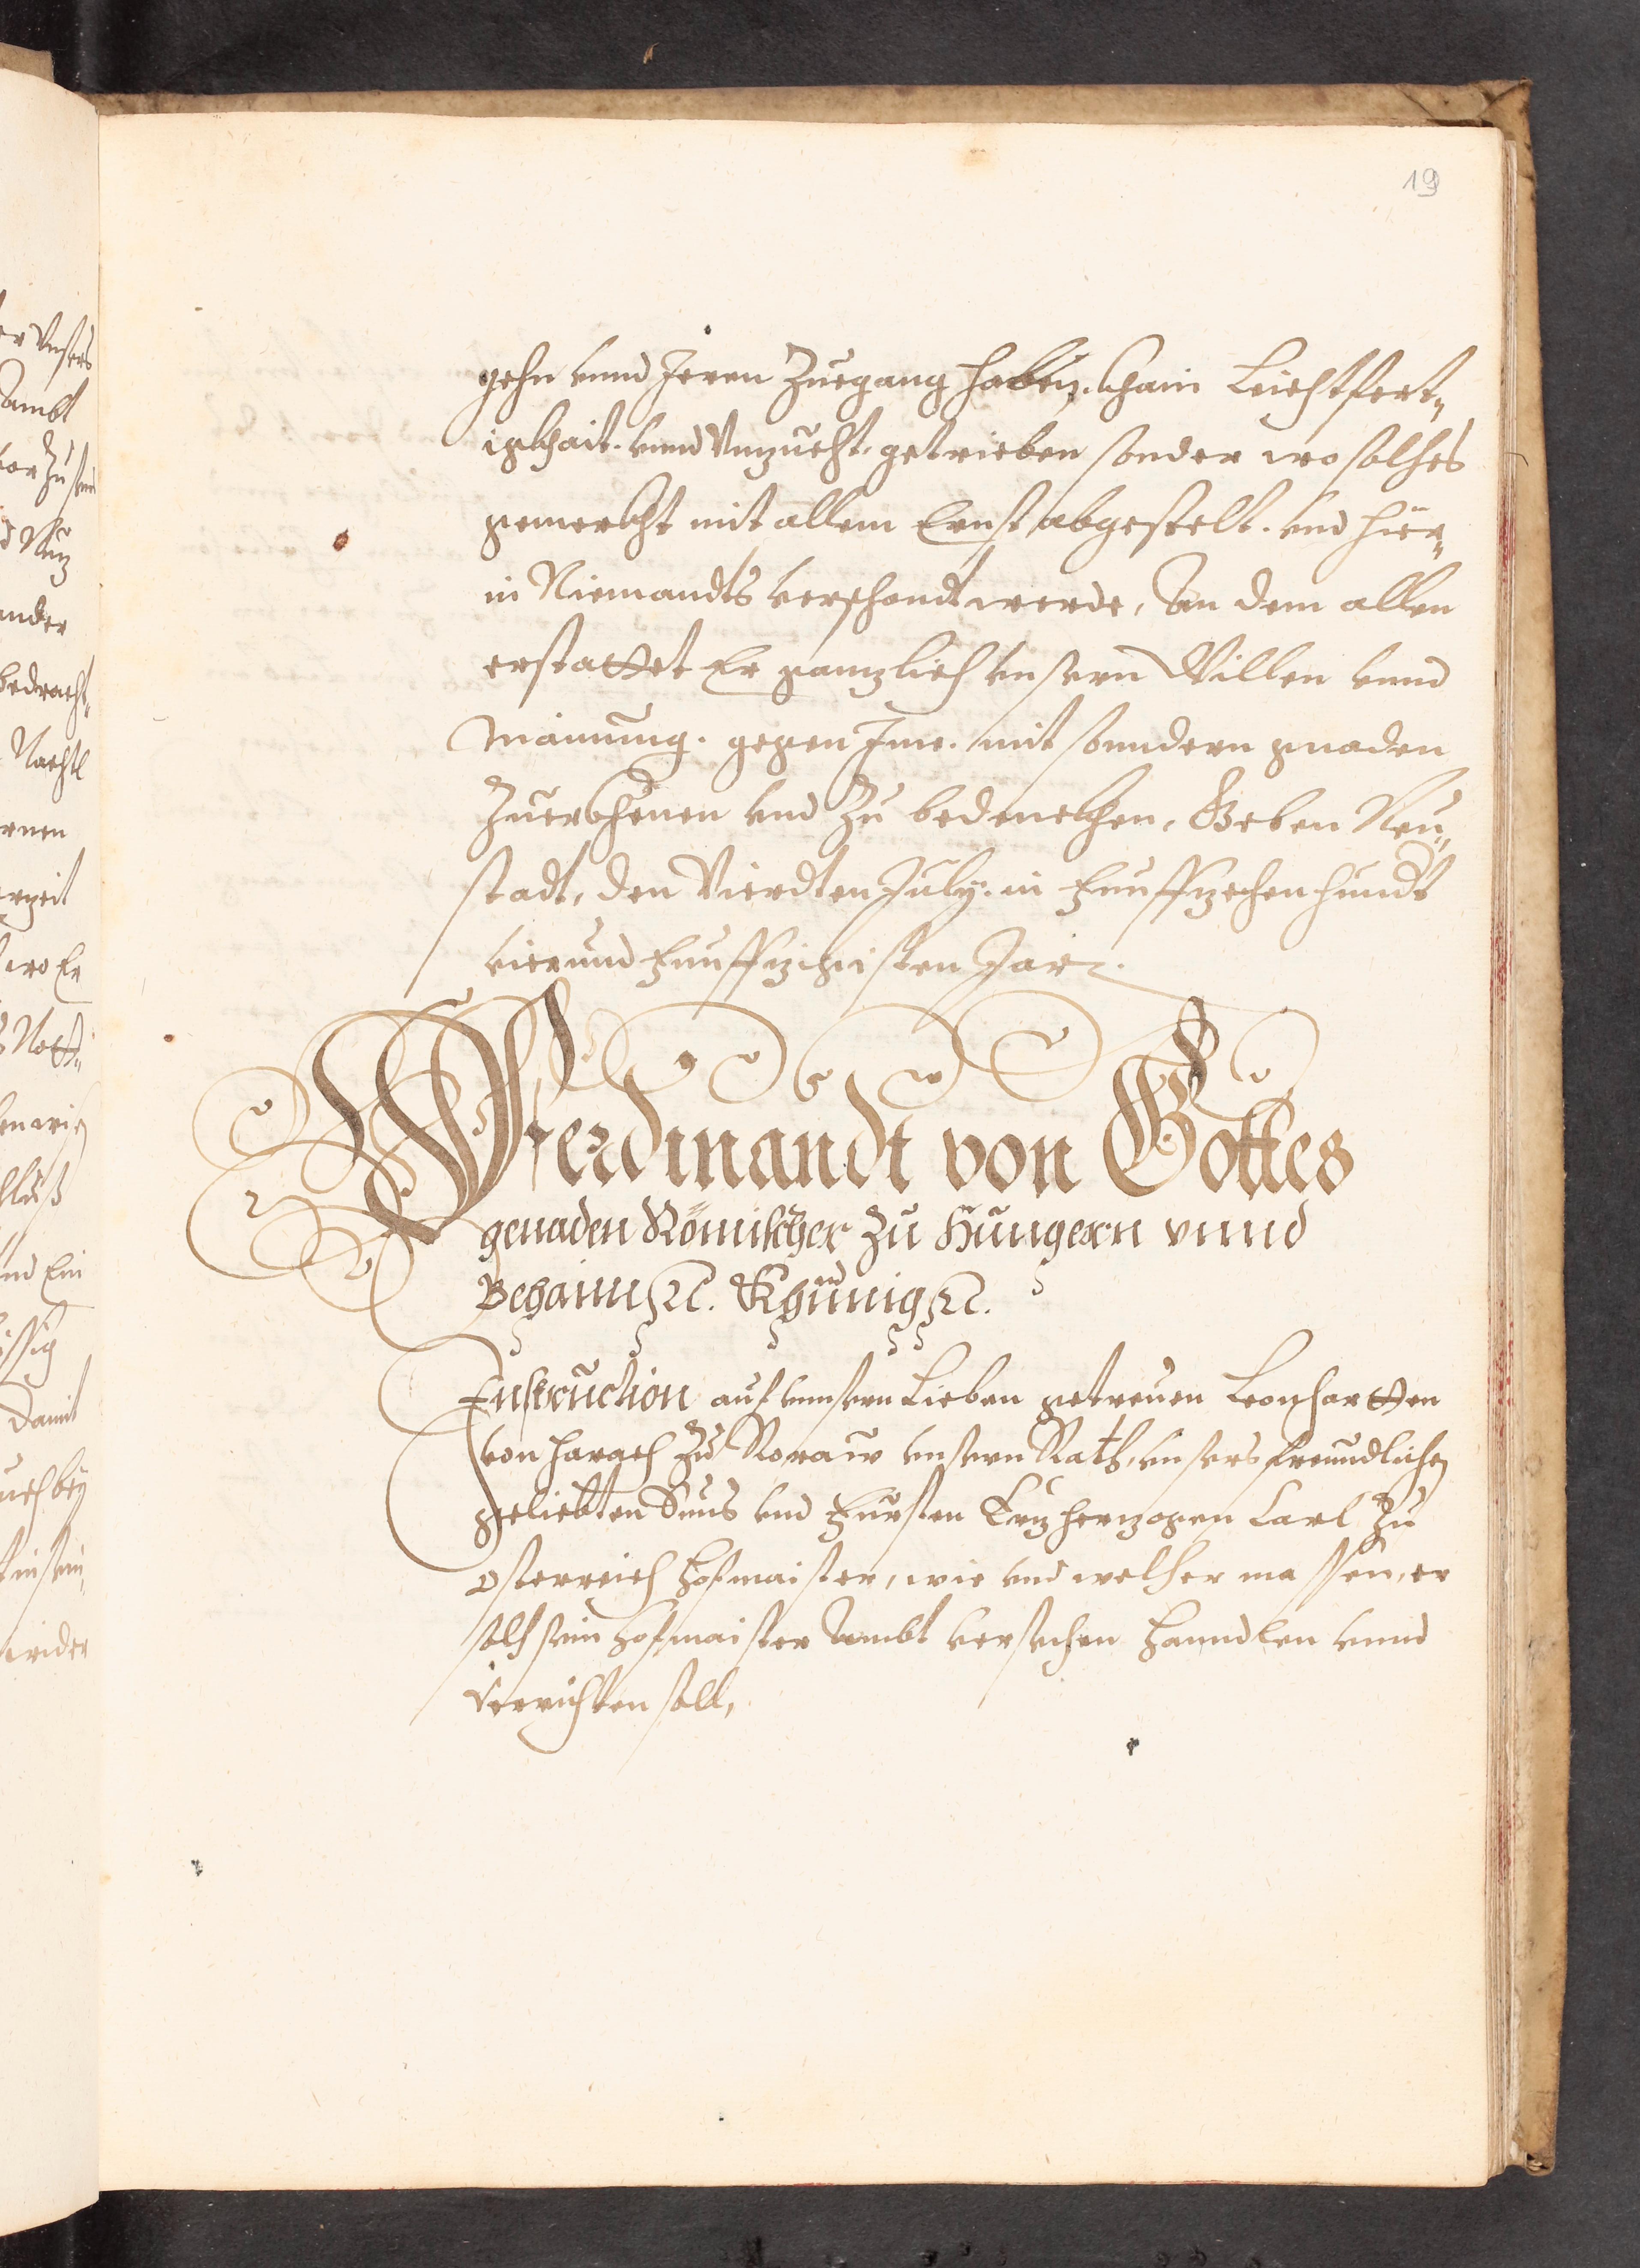 19
gehn vnnd Jeren Zuegang haben. khain Leichtfert„
igkhait. vnnd Vnzucht. getrieben sonder wo solches
gemerkht mit allem Ernst abgestelt. vnd hier„
in Niemandts verschondt werde, An dem allen
erstattet Er ganzlich vnsern Willen vnnd
Mainung. gegen Jme. mit sonndern gnaden
Zuerkhenen vnd Zu bedenckhen, Geben Neu„
stadt, den Vierdten July. in Funffzechenhundt
vierund Funffzigisten Jar.
Wir Ferdinandt von Gottes
genaden Römischer Zu Hungern vnnd
Behaim etc. Khünig etc.
Instruction auf vnnsern Lieben getreuen Leonhartten
von Harrach Zu Roraw vnsern Rath, vnsers freundlichen
geliebten Suns vnd Fürsten Erzherzogen Carl Zu
Osterreich Hofmaister, wie vnd welcher massen, er
solch sein Hofmaister Ambt versechen Hanndlen vnnd
Verrichten soll,
er Vnsers
Ambt
vor Zu
d Nuz
ander
bedracht„
Nachtl
ernen
erzeit
wo Er
damit
auch bey
wider